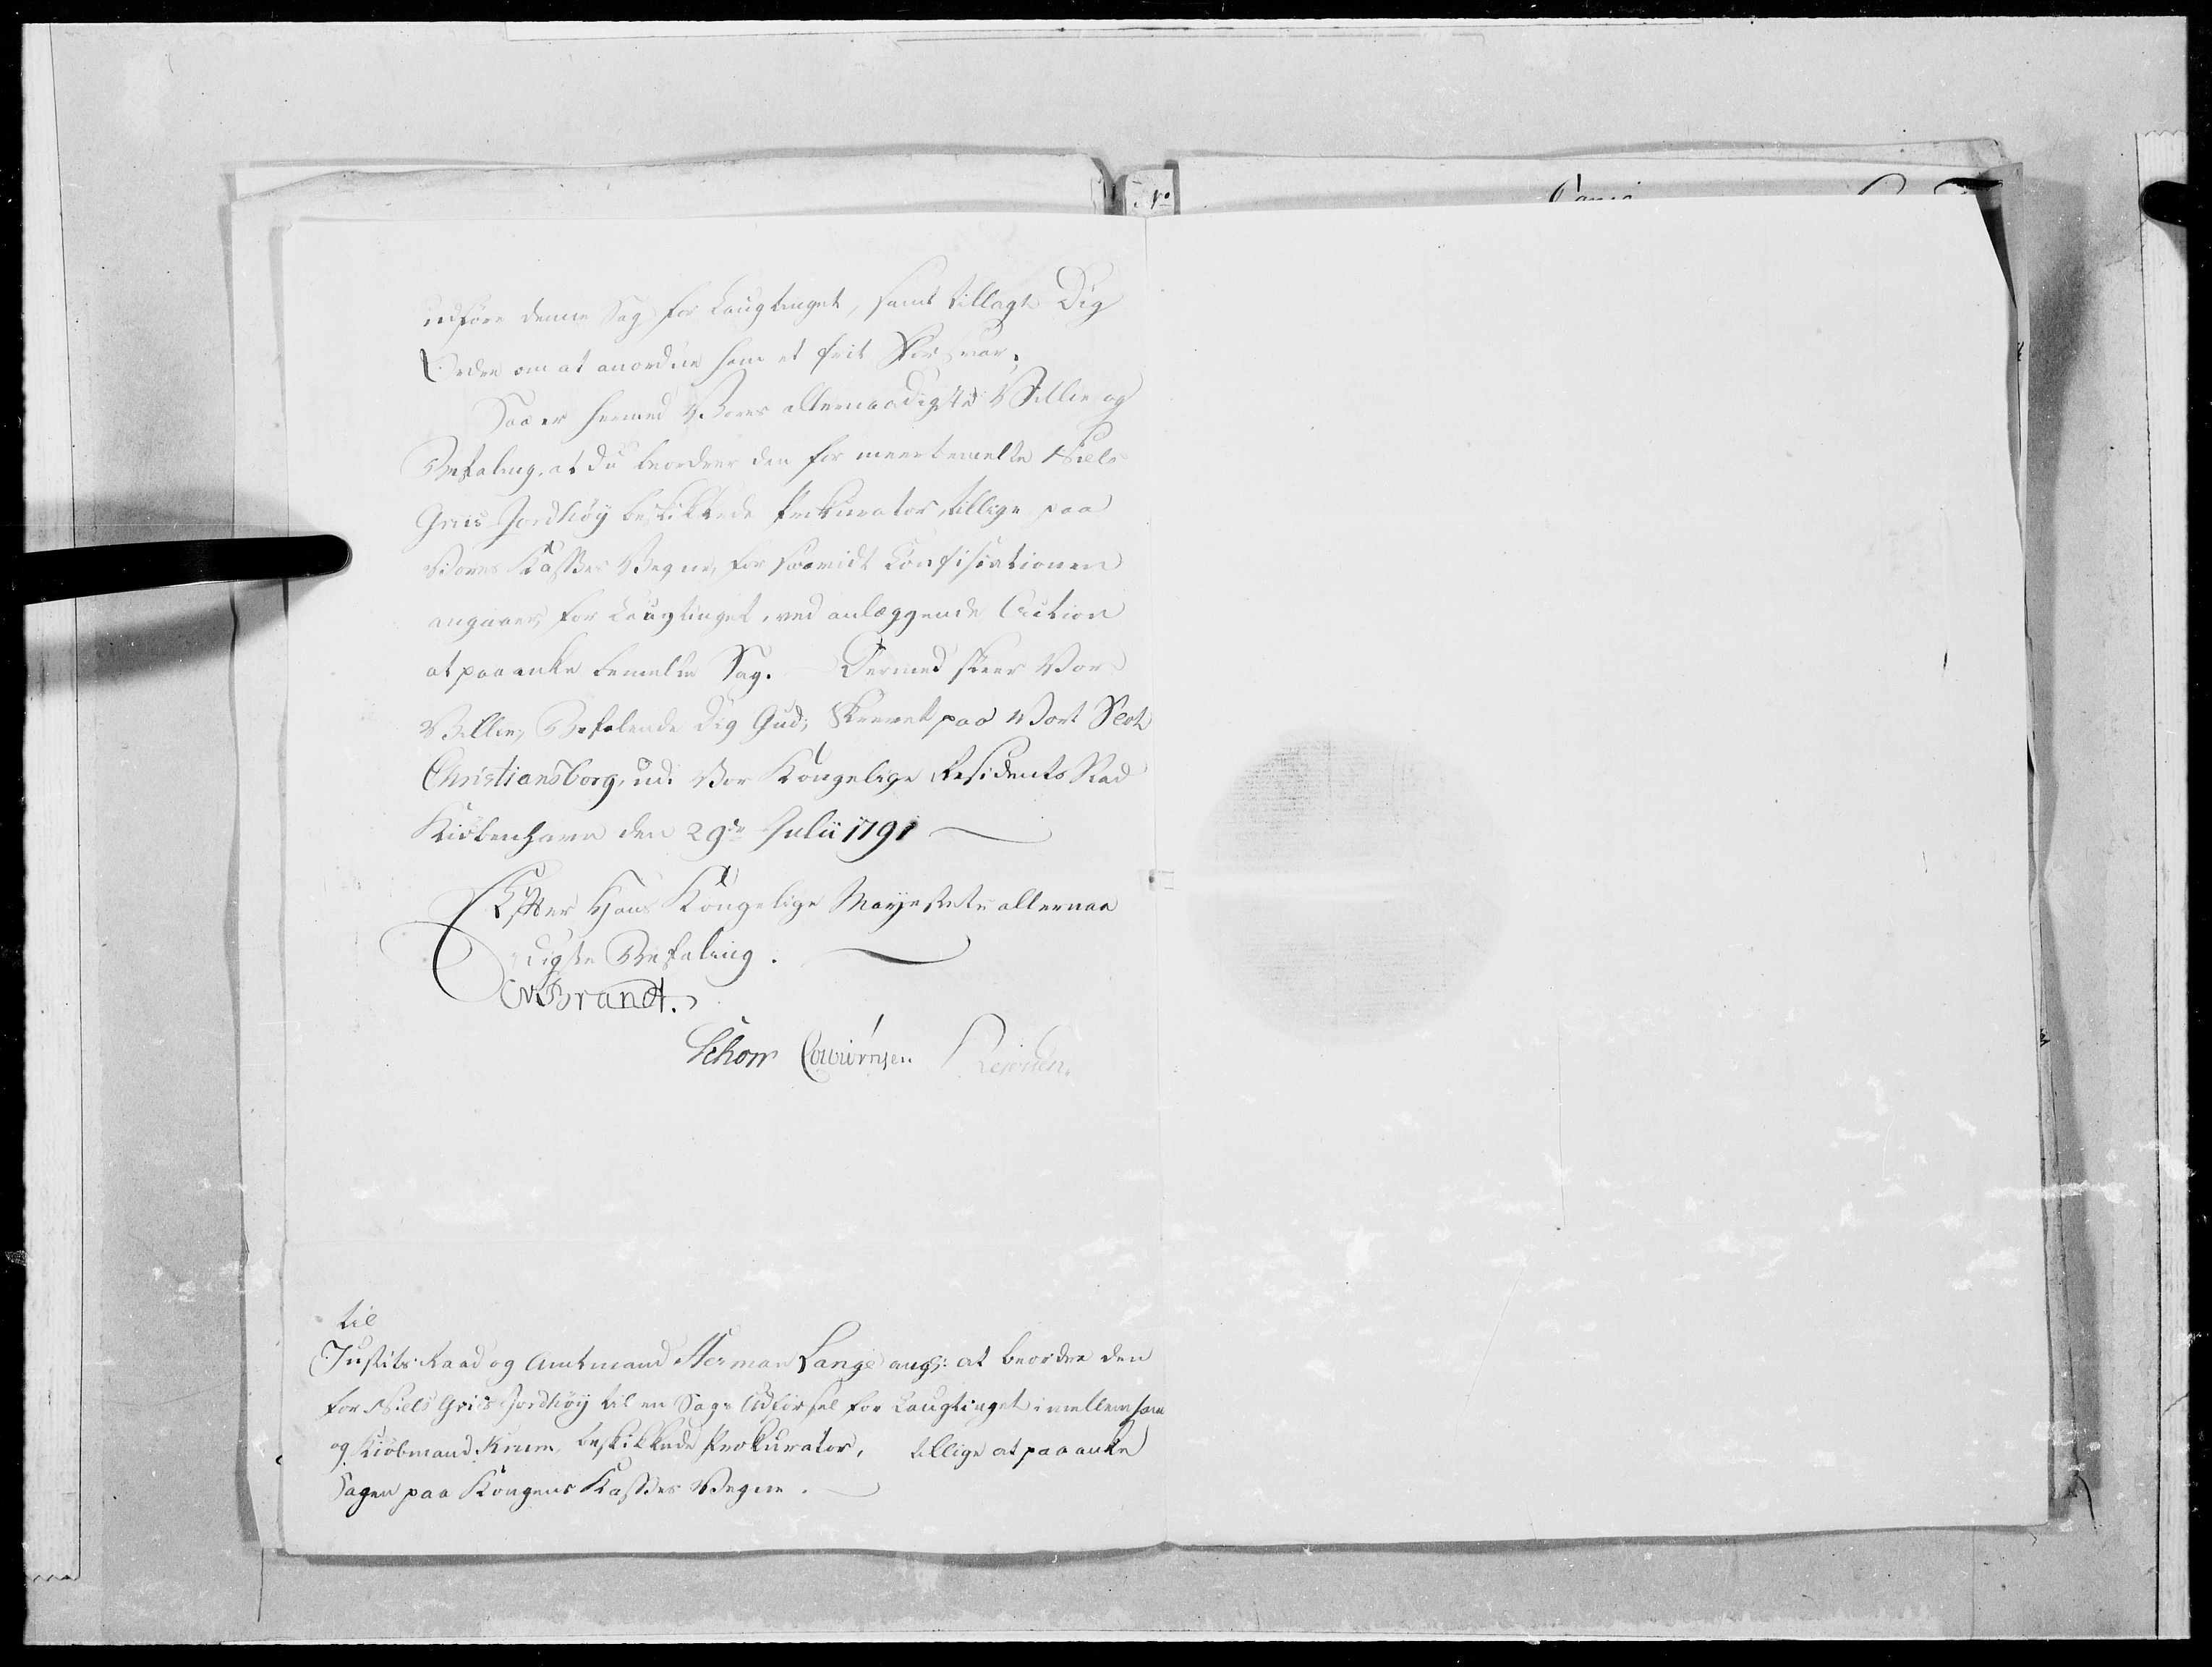 udføre denne Sag for Laugtinget, samt tillagt Dig
Ordre om at anordne ham et frit Forsvar.
Saa er hermed Vores allernaadigste Villie og
Befaling, at du beordrer den for meerbemelte Niels
Griis Jordhöy beskikkede Prokurator, tillige paa
Vores Kasses Vegne, for saavidt Confiscationen
angaaer, for Laugtinget, ved anlæggende Action
at paaanke bemelte Sag. Dermed skeer Vor
Villie, Befalende Dig Gud; Skrevet paa Vort Slot
Christiansborg, udi Vor Kongelige Residents Stad
Kiöbenhavn den 29de Julii 1791
Efter Hans Kongelige Mayestets allernaa
digste Befaling.
Brandt.
Schow
til
Justits-Raad og Amtmand Herman Lange ang: at beordre den
for Niels Griis Jordhöy til en Sags Udförsel for Laugtinget imellem ham
og Kiöbmand Krum, beskikkede Prokurator, tillige at paaanke
Sagen paa Kongens Kasses Vegne.
N.o